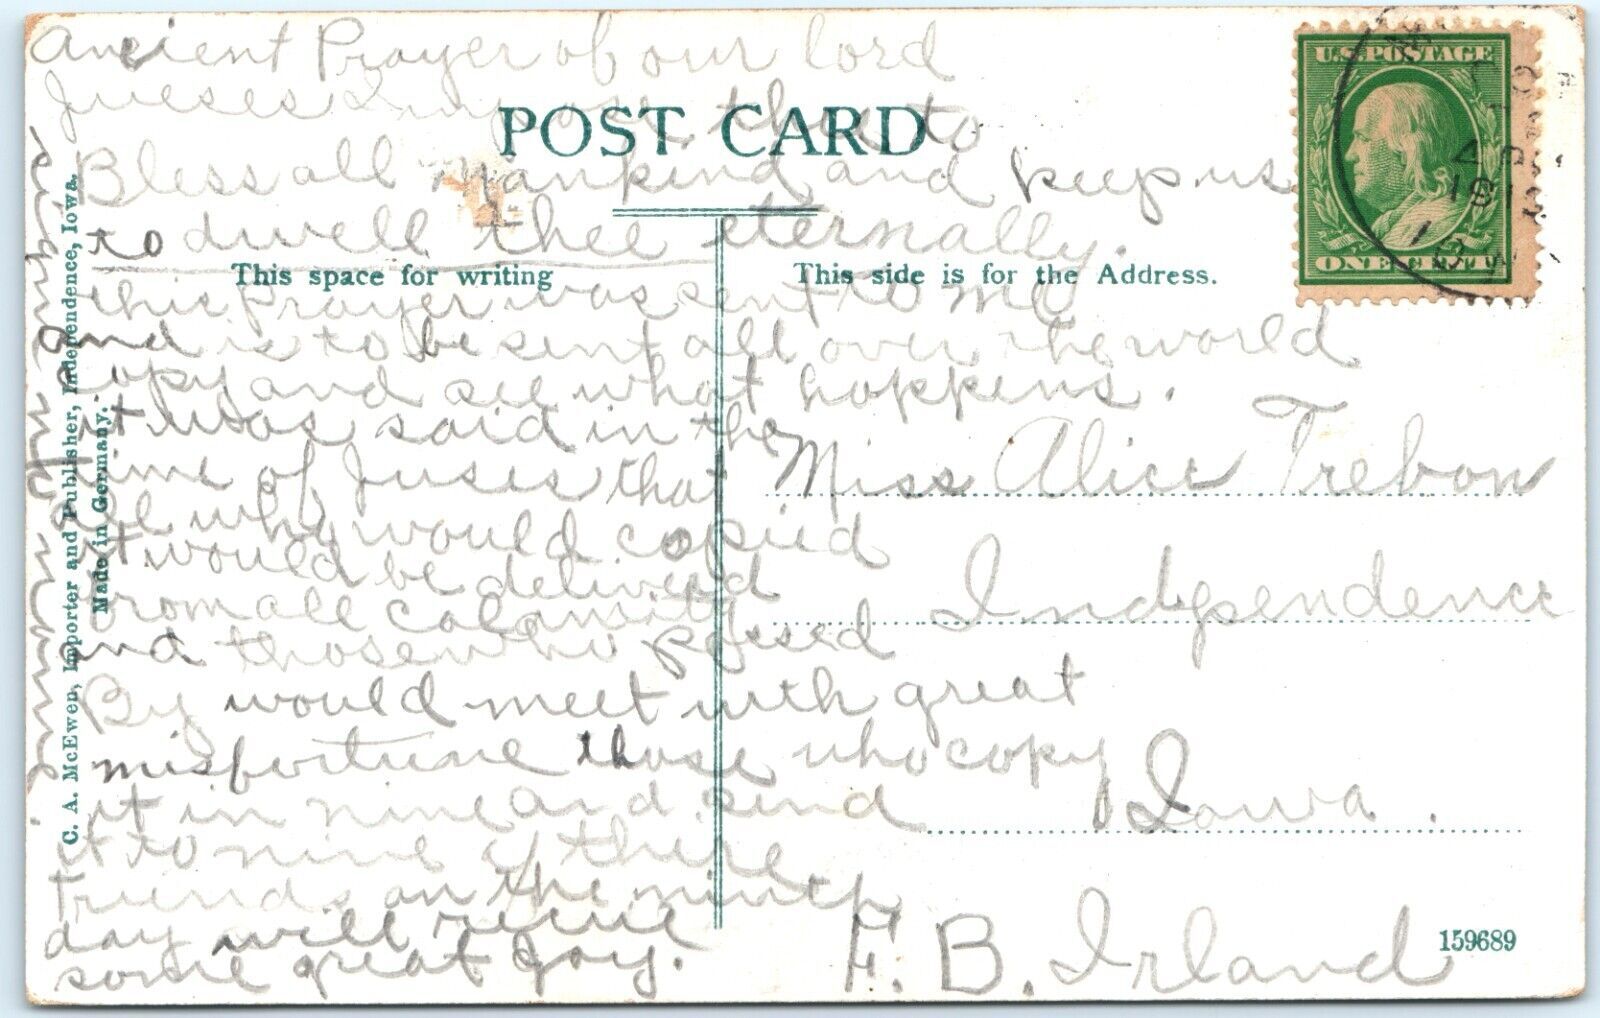 Ancient Prayer of our lord
Jueses Implore thee to
Bless all Mankind and keep us
to dwell thee eternally.
This Prayer was sent to me
and is to be sent all over the world
Copy and see what happens.
it was said in the
time of Juses that
all who would copied
it would be deliverd
from all calamity
and those who passed
By would meet with great
misfortune those who copy
it in nine and send
it to nine of there
friends on the ninth
day will recive
some great Joy.
sign no name.
POST CARD
This space for writing
This side is for the Address.
C. A. McEwen, Importer and Publisher, Independence, Iowa.
Made in Germany.
U.S. POSTAGE
ONE CENT
1912
Miss Alice Trebon
Independence
Iowa.
F. B. Irland
159689